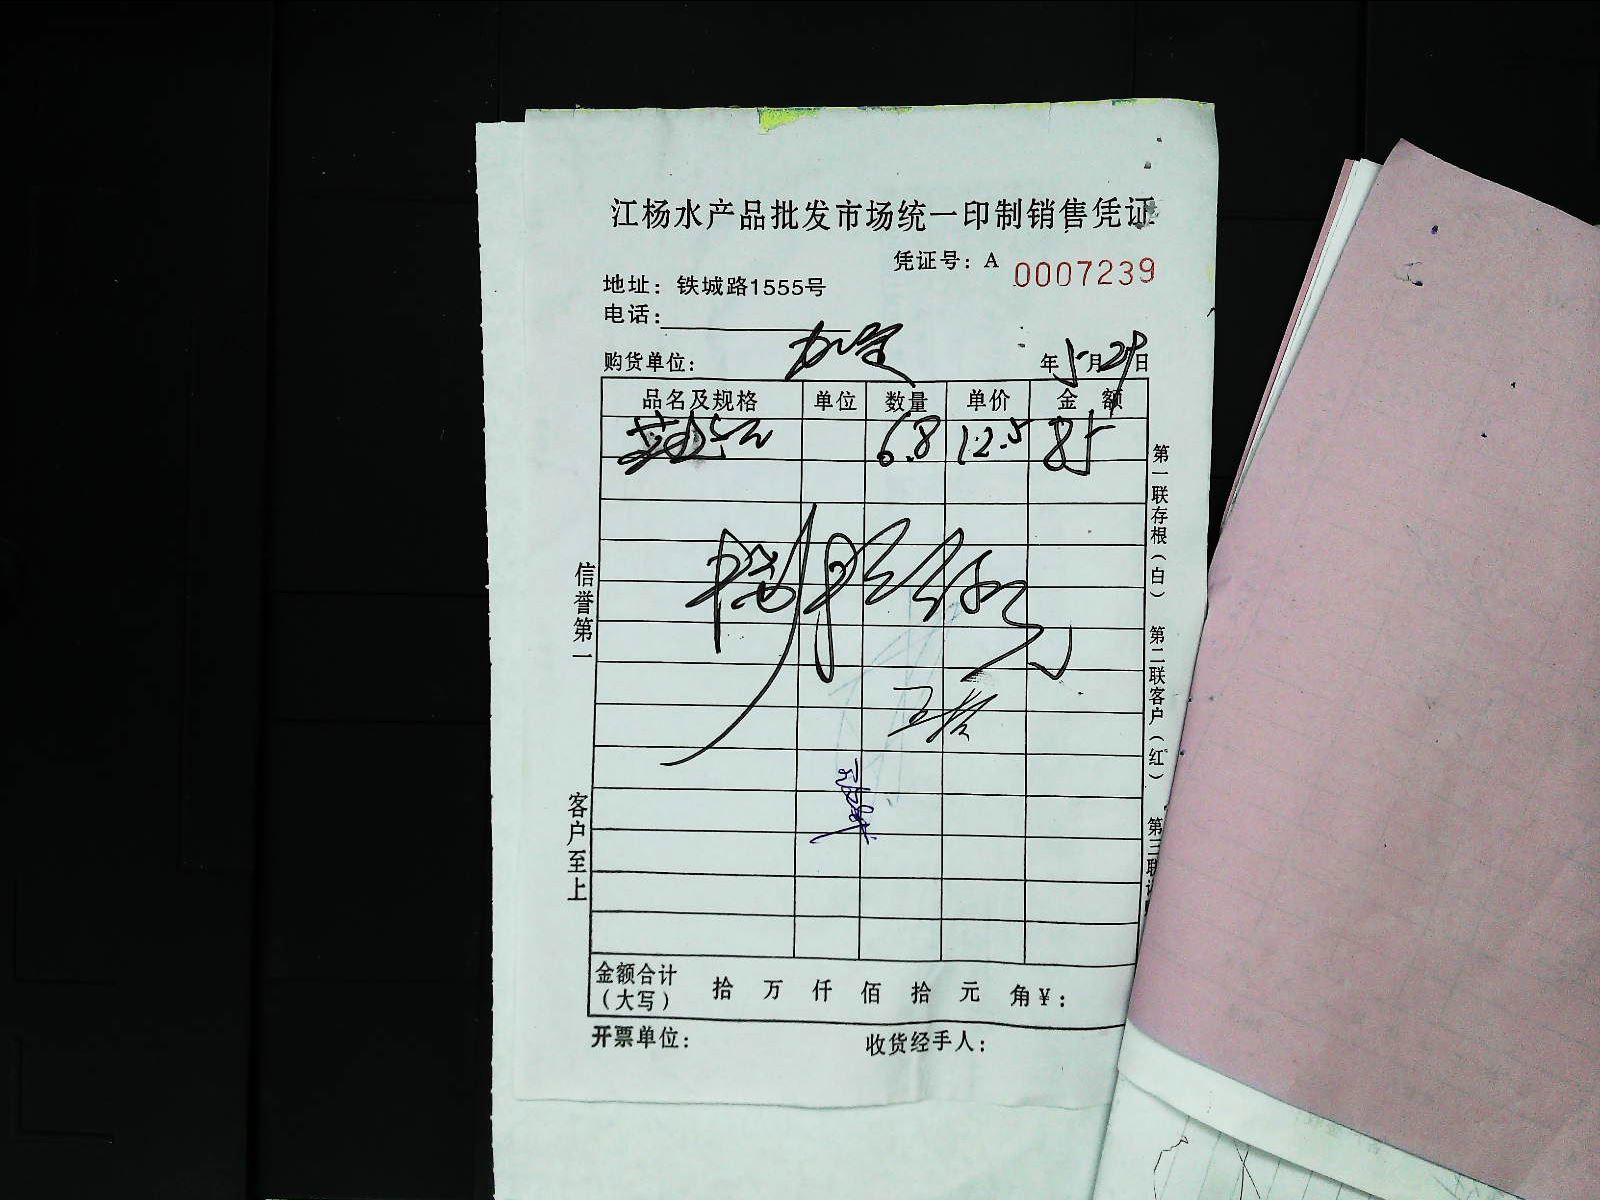 江杨水产品批发市场统一印制销售凭证
凭证号：A 0007239
地址：铁城路1555号
电话：
购货单位： 年5月29日
品名及规格 单位 数量 单价 金额
6.8 12.5 85
信誉第一
客户至上
第一联存根（白）
第二联客户（红）
第三联
金额合计（大写） 拾 万 仟 佰 拾 元 角 ¥：
开票单位： 收货经手人：